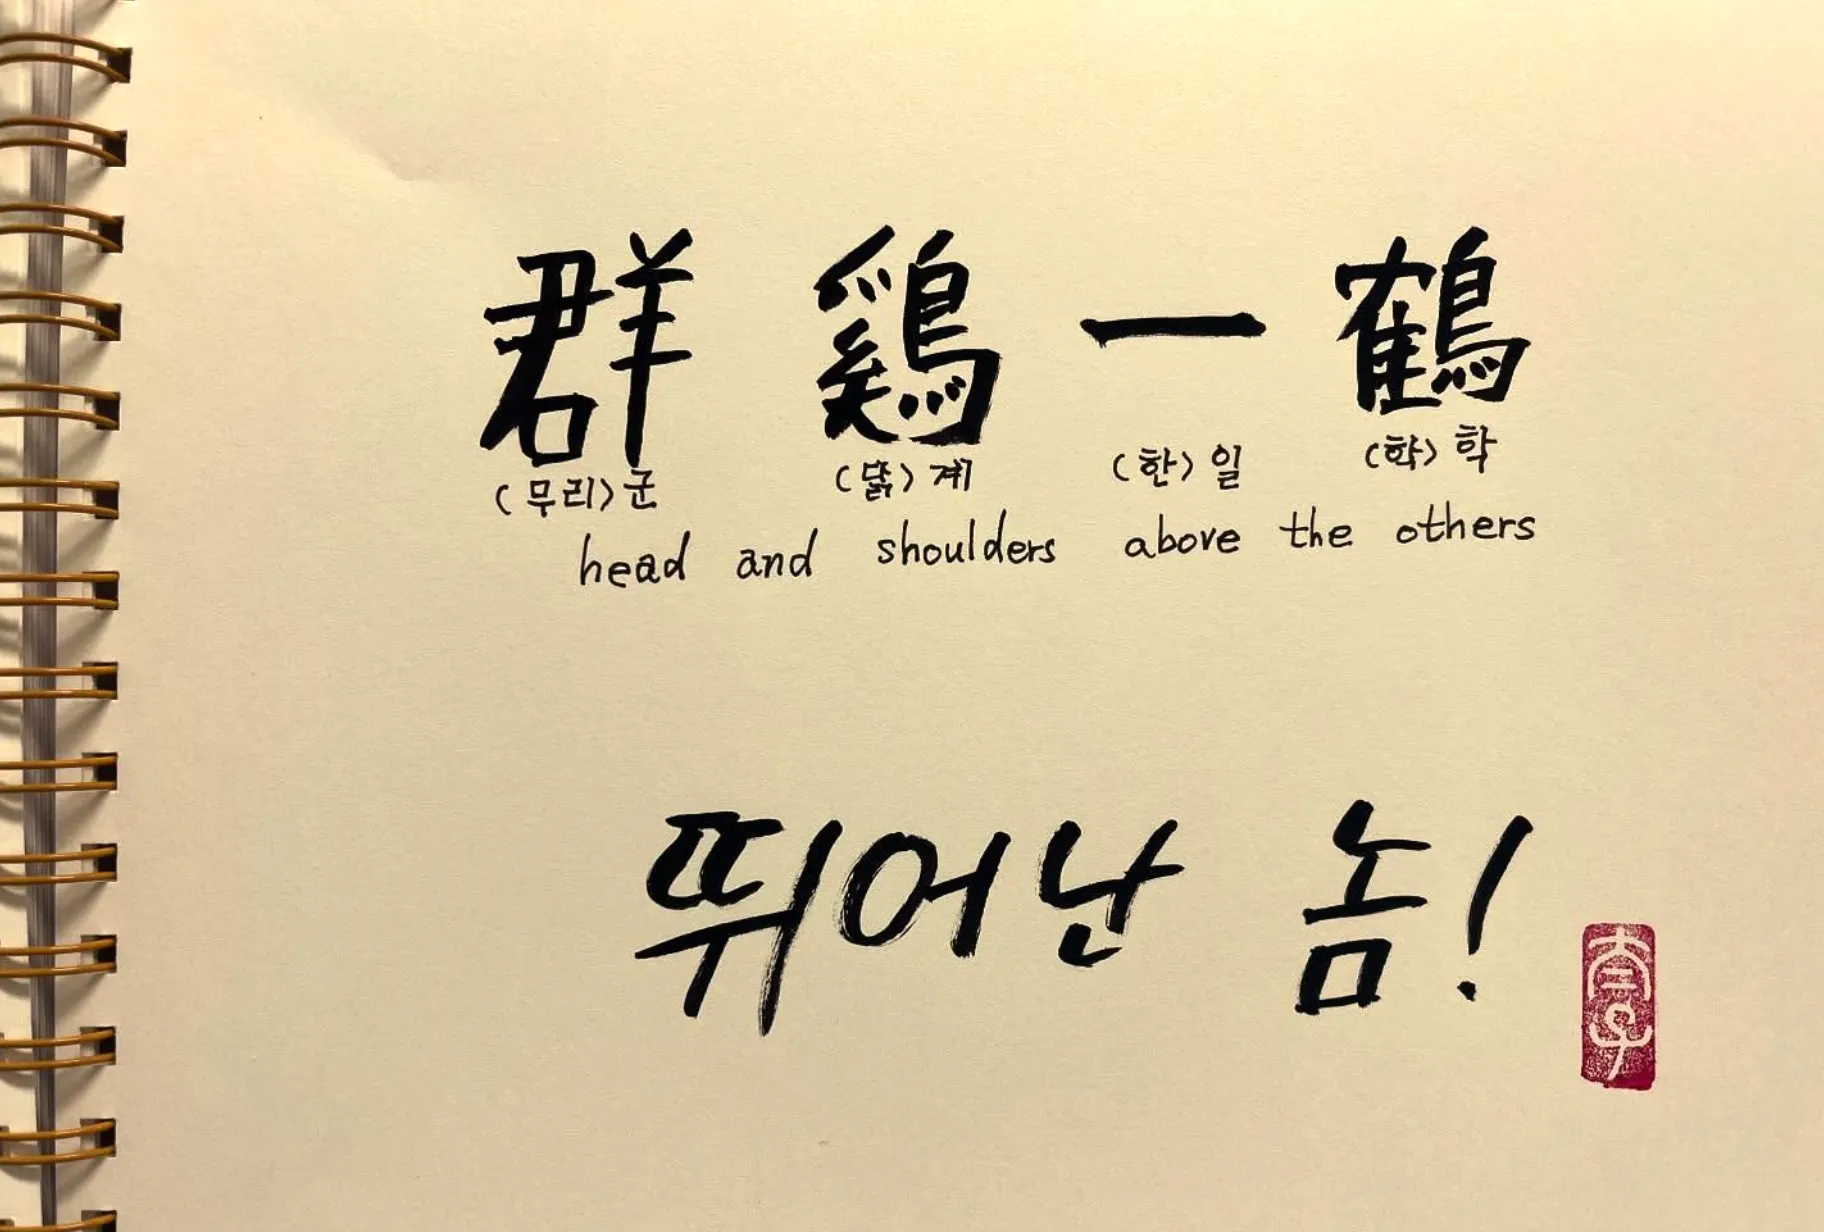 群 鷄 一 鶴
(무리)군 (닭)계 (한)일 (학)학
head and shoulders above the others
뛰어난 놈!